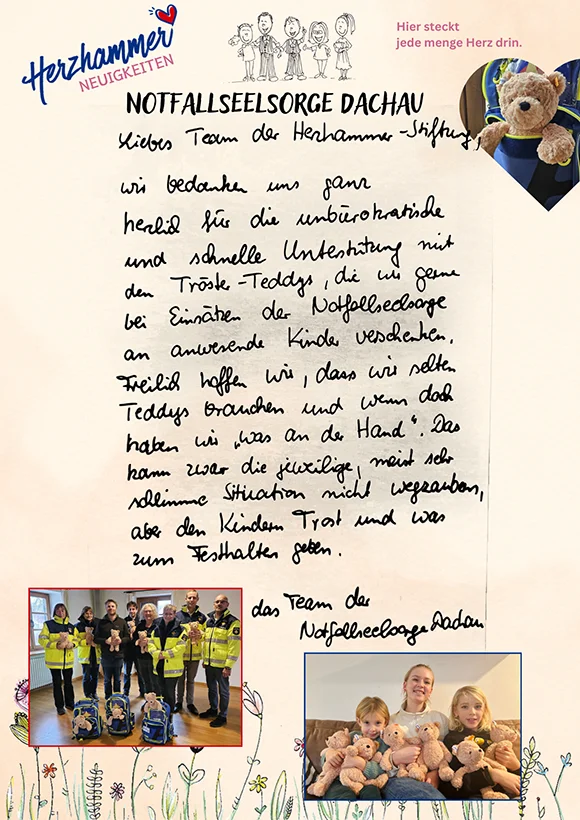 Herzhammer
NEUIGKEITEN
Hier steckt
jede menge Herz drin.
NOTFALLSEELSORGE DACHAU
Liebes Team der Herzhammer-Stiftung,
wir bedanken uns ganz
herzlich für die unbürokratische
und schnelle Unterstützung mit
den Tröster-Teddys, die wir gerne
bei Einsätzen der Notfallseelsorge
an anwesende Kinder verschenken.
Freilich hoffen wir, dass wir selten
Teddys brauchen und wenn doch
haben wir „was an der Hand“. Das
kann zwar die jeweilige, meist sehr
schlimme Situation nicht wegzaubern,
aber den Kindern Trost und was
zum Festhalten geben.
das Team der
Notfallseelsorge Dachau